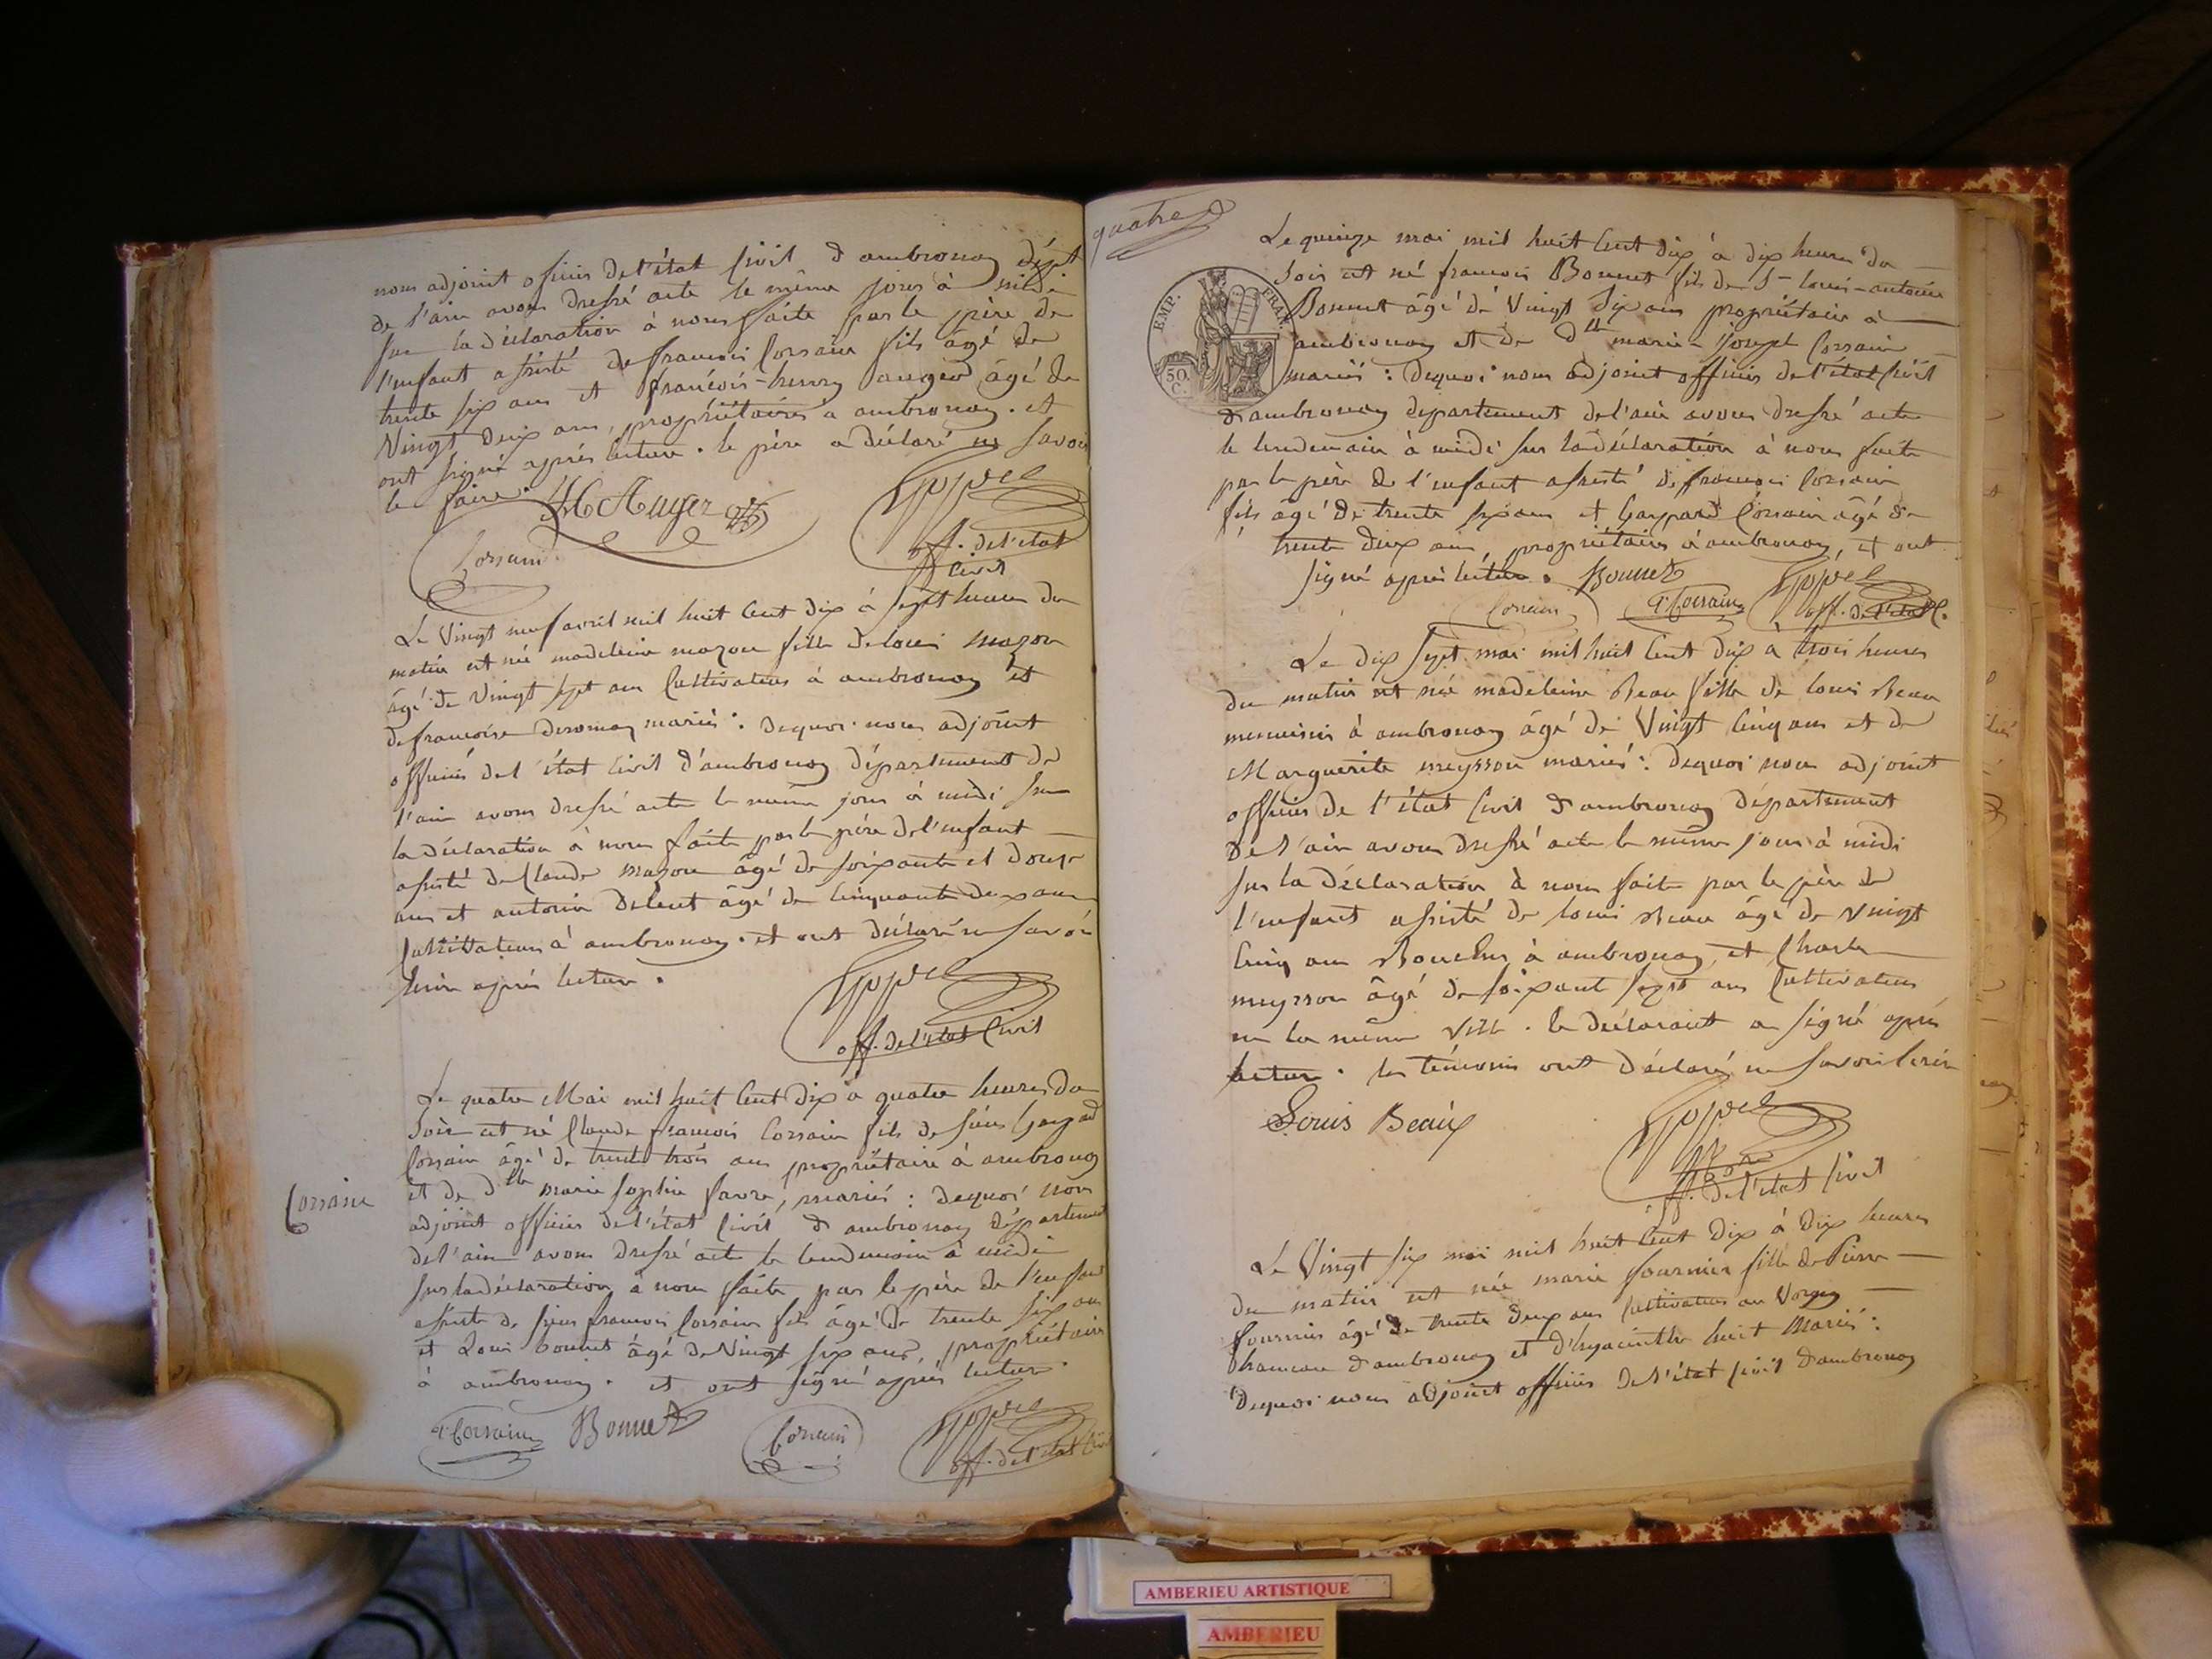 nous adjoint officier de l'état civil d'ambronay dépt
de l'ain avons dressé acte le même jour à midi
sur la déclaration à nous faite par le père de
l'enfant assisté de françois Corsain fils âgé de
trente six ans et françois-henry augerd âgé de
Vingt deux ans, propriétaires a ambronay. et
ont signé après lecture. le père a déclaré ne savoir
le faire.
off. de l'état
civil
Le Vingt neuf avril mil huit cent dix à sept heures du
matin est née madeleine mazon fille de louis mazon
âgé de vingt sept ans cultivateur à ambronay et
de francoise mariés: dequoi nous adjoint
officier de l'état civil d'ambronay département de
l'ain avons dressé acte le même jour à midi sur
la déclaration à nous faite par le père de l'enfant
assisté de Claude mazon âgé de soixante et douze
ans et antoine âgé de cinquante deux ans
cultivateurs à ambronay. et ont déclaré ne savoir
écrire après lecture.
off. de l'état civil
Le quatre Mai mil huit cent dix à quatre heures du
soir est né Claude françois Corsain fils de sieur Gaspard
Corsain âgé de trente trois ans propriétaire à ambronay
et de dlle marie sophie favre, mariés: dequoi nous
Corsain
adjoint officier de l'état civil d'ambronay département
de l'ain avons dressé acte le lendemain à midi
sur la déclaration à nous faite par le père de l'enfant
assisté de sieur francois Corsain fils âgé de trente six ans
et Louis bonnet âgé de Vingt six ans, propriétaires
à ambronay. et ont signé après lecture.
G Corsain Bonnet Corsain
off. de l'état civil
quatre
Le quinze mai mil huit cent dix à dix heures du
soir est né francois Bonnet fils de Sr louis-antoine
EMP. FRAN.
50 C.
Bonnet âgé de Vingt six ans propriétaire à
ambronay et de dlle marie-joseph Corsain
mariés: dequoi nous adjoint officier de l'état civil
d'ambronay departement de l'ain avons dressé acte
le lendemain à midi sur la déclaration à nous faite
par le père de l'enfant assisté de francois Corsain
fils âgé de trente six ans et Gaspard Corsain âgé de
trente deux ans, propriétaires à ambronay, et ont
signé après lecture. Bonnet
Corsain G Corsain off. de l'état C.
Le dix sept mai mil huit cent dix à trois heures
du matin est née madeleine Beau fille de louis Beau
menuisier à ambronay âgé de Vingt cinq ans et de
Marguerite meysson mariés: dequoi nous adjoint
officier de l'état civil d'ambronay département
de l'ain avons dressé acte le même jour à midi
sur la déclaration à nous faite par le père de
l'enfant assisté de louis Beau âgé de vingt
cinq ans Boucher à ambronay, et Charles
meysson âgé de soixant sept ans cultivateur
en la même ville. le déclarant a signé après
lecture. les témoins ont déclaré ne savoir écrire
Louis Beaux
off. de l'état civil
Le Vingt six mai mil huit cent dix à dix heures
du matin est née marie fournier fille de Pierre
fournier âgé de trente deux ans cultivateur au Vorgey
hameau d'ambronay et d'hyacinthe huit Mariés:
Dequoi nous adjoint officier de l'état civil d'ambronay
AMBERIEU ARTISTIQUE
AMBERIEU